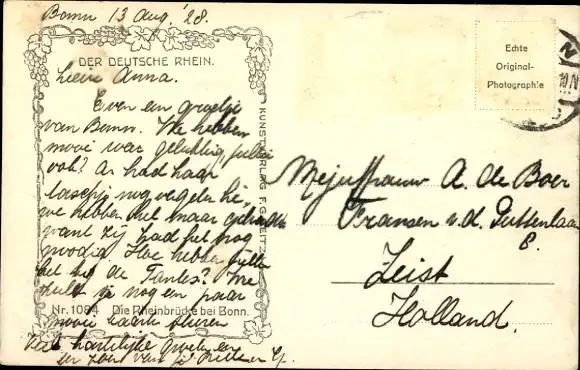 Bonn 13 Aug. '28.
DER DEUTSCHE RHEIN.
Lieve Anna.
Even een groetje
van Bonn. We hebben
mooi weer gelukkig, jullie
ook? A. had haar
nog vergeten he,
we hebben het maar
want zij had het nog
noodig. Hoe hebben jullie
het bij de Tantes? We
zullen je nog een paar
Nr. 1084 Die Rheinbrücke bei Bonn.
mooie kaarten sturen
Veel hartelijke groeten en
een zoen van je
KUNSTVERLAG F. G. ZEITZ
Echte
Original-
Photographie
Mejuffrouw A. de Boer
Fransen v.d. Puttenlaan
8.
Zeist
Holland.